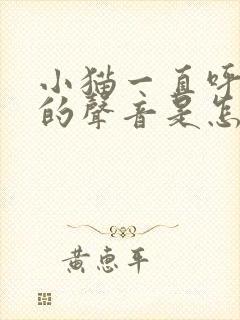 小猫一直呼
的聲音是怎
黄惠平